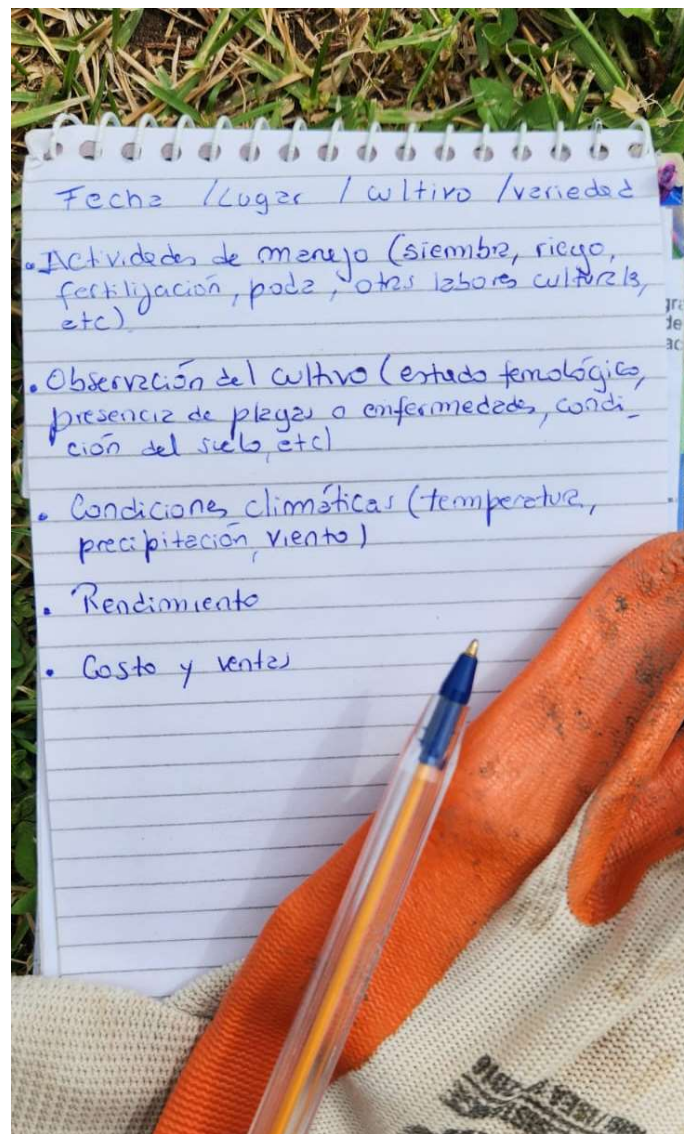 Fecha / Lugar / cultivo / variedad
• Actividades de manejo (siembra, riego,
fertilización, poda, otras labores culturals,
etc)
• Observación del cultivo (estado femológico,
presencia de plagas o enfermedades, condi_
ción del suelo, etc)
• Condiciones climáticas (temperatura,
precipitación, viento)
• Rendimiento
• Costo y ventas
gra
de
ac